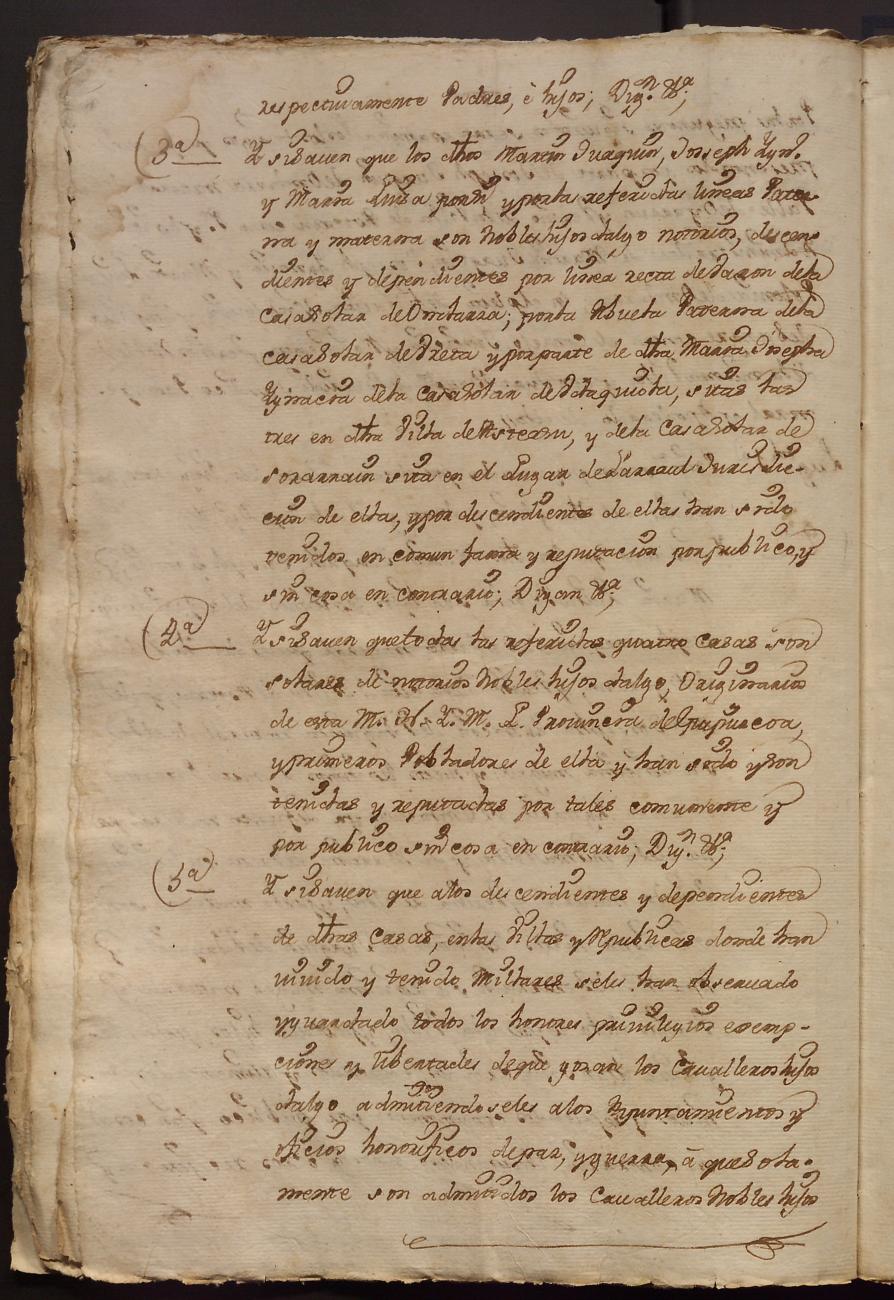 respectivamente Padres, è hijos; Dig.n &.a;
(3a) Y si Saven que los dhos Martin Juaquin, Joseph Ygn.o
y Maria Luisa por si y por las referidas lineas Pater
na y materna son Nobles hijos dalgo notorios, descen
dientes y dependientes por linea recta de Varon dela
Casa Solar de ; por la Abuela Paterna dela
casa Solar de Yreta y por parte de dha Maria Josepha
Ygnacia dela Casa Solar de , sitas las
tres en dha Villa de Asteasu, y dela Casa Solar de
Sorarrain sita en el Lugar de Larraul Jurisdic-
cion de ella, y por descendientes de ellas han sido
tenidos en comun fama y reputacion por publico, y
sin cosa en contrario; Digan &.a;
(4a) Y si Saven que todas las referidas quatro casas son
solares de notorios Nobles hijos dalgo, Originarios
de esta M. N. Y. M. L. Provincia de Guipuscoa,
y primeros Pobladores de ella y han sido y son
tenidas y reputadas por tales comunmente y
por publico sin cosa en contrario; Dig.n &.a;
(5a) Y si Saven que alos descendientes y dependientes
de dhas Casas, enlas Villas y Republicas donde han
vivido y tenido Millares seles han observado
y guardado todos los honores privilegios exemp-
ciones y libertades deque gosan los Cavalleros hijos
dalgo admitiendoseles alos Ayuntamientos y
oficios honorificos de paz, y guerra, à que Sola-
mente son admitidos los Cavalleros Nobles hijos